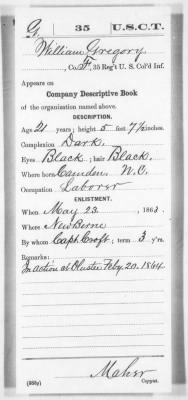 G. 35 U.S.C.T.
William Gregory
, Co. F, 35 Reg't U. S. Col'd Inf.
Appears on
Company Descriptive Book
of the organization named above.
DESCRIPTION.
Age 21 years; height 5 feet 7½ inches.
Complexion Dark.
Eyes Black; hair Black.
Where born Camden, N.C.
Occupation Laborer
ENLISTMENT.
When May 23, 1863.
Where New Berne
By whom Capt. Croft; term 3 y'rs.
Remarks:
In action at Olustee Feby. 20. 1864.
Maher
(383g) Copyist.